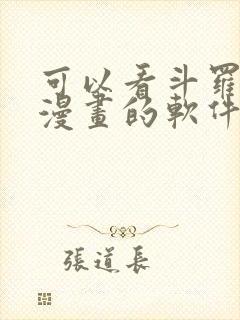 可以看斗羅
漫畫的軟件
張道長